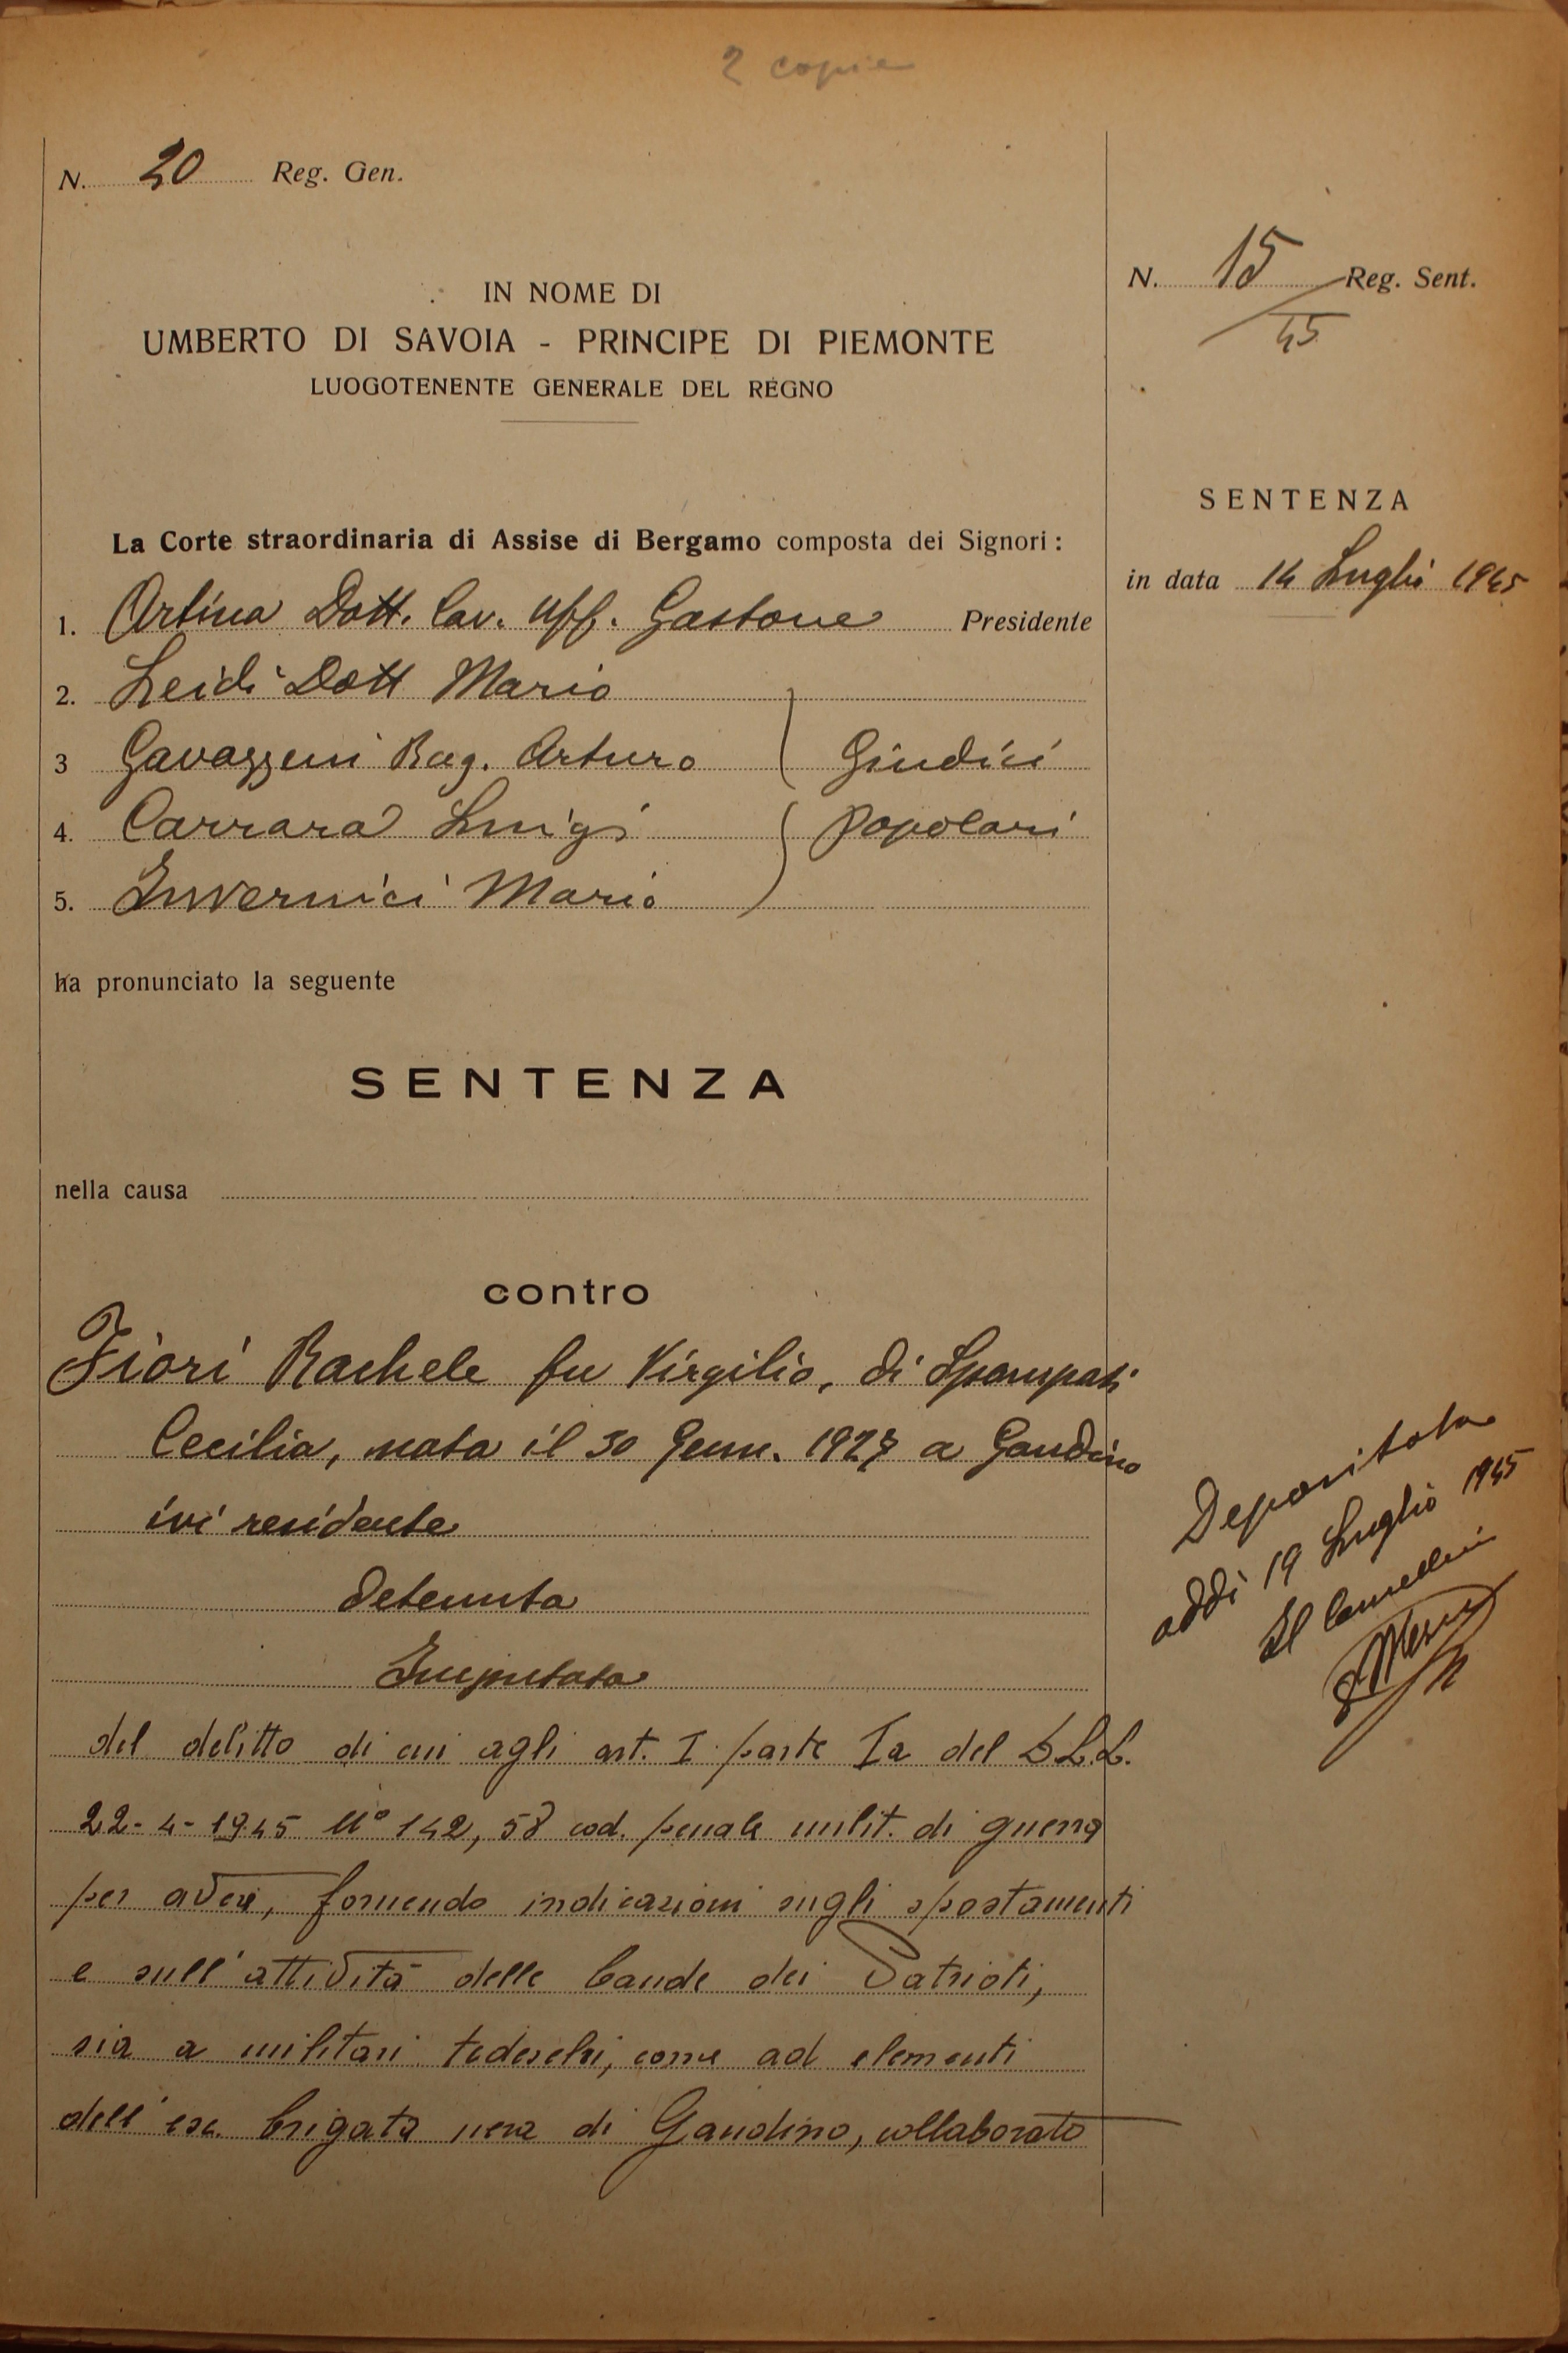 2 copie
N. 20 Reg. Gen.
IN NOME DI
UMBERTO DI SAVOIA - PRINCIPE DI PIEMONTE
LUOGOTENENTE GENERALE DEL REGNO
N. 15/45 Reg. Sent.
SENTENZA
in data 14 Luglio 1945
La Corte straordinaria di Assise di Bergamo composta dei Signori:
1. Artina Dott. Cav. Uff. Gastone Presidente
2. Leidi Dott Mario
3 Gavazzeni Rag. Arturo Giudici
4. Carrara Luigi popolari
5. Invernici Mario
ha pronunciato la seguente
SENTENZA
nella causa
contro
Fiori Rachele fu Virgilio, di Spampati
Cecilia, nata il 30 Genn. 1927 a Gandino
ivi residente
detenuta
Imputata
del delitto di cui agli art. I parte Ia del D.L.L.
22-4-1945 N° 142, 58 cod. penale milit. di guerra
per avere, fornendo indicazioni sugli spostamenti
e sull'attività delle bande dei Patrioti,
sia a militari tedeschi, come ad elementi
dell'ex. brigata nera di Gandino, collaborato
Depositata
addì 19 Luglio 1945
Il Cancelliere